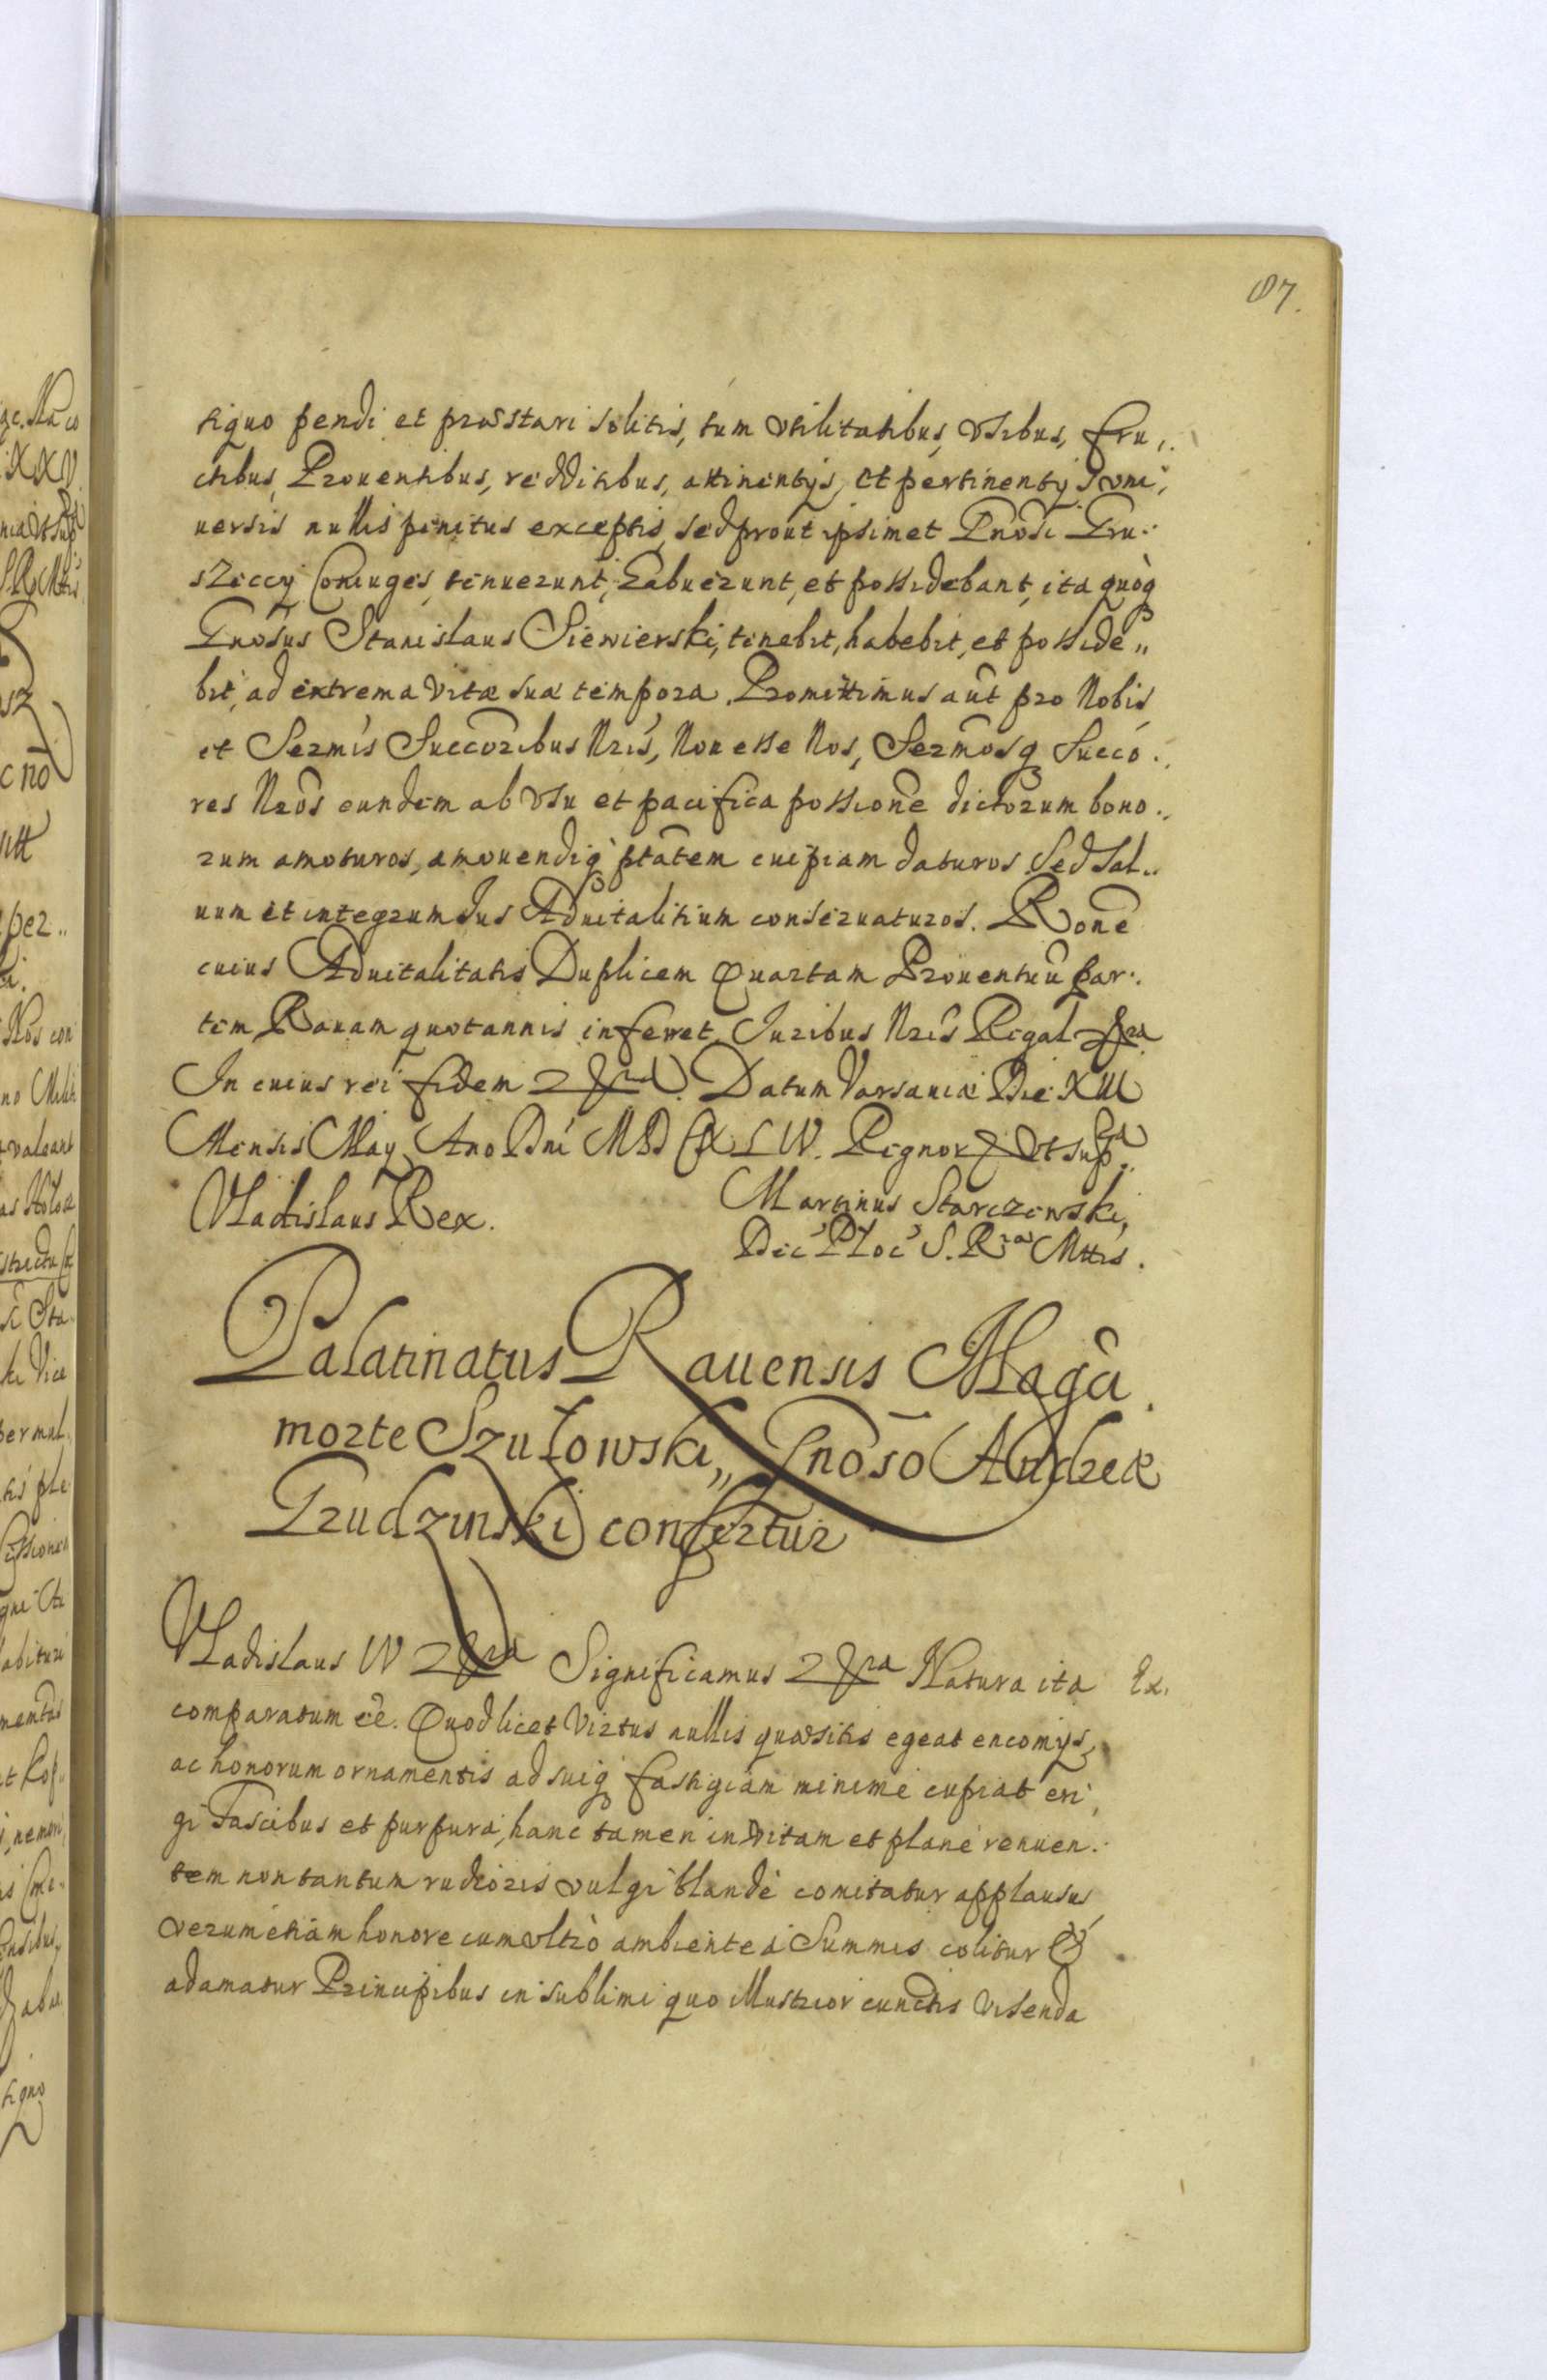 87.
tiquo pendi et præstari solitis, tum vtilitatibus, vsibus, fru,.
ctibus, Prouentibus, redditibus, attinentijs, et pertinentijs vni,
uersis nullis penitus exceptis, sed prout ipsimet Gnosi Gru.
szeccÿ Coniuges, tenuerunt, habuerunt, et possidebant, ita quoq
Gnosus Stanislaus Siewierski, tenebit, habebit, et posside„
bit, ad extrema vitæ suæ tempora. Promittimus aut pro Nobis
et Sermis Succoribus Nris, Non esse Nos, Sermosq Succo.,
res Nros eundem ab vsu et pacifica possione dictorum bono.,
rum amoturos, amouendiq ptatem cuipiam daturos Sed sal„
uum et integrum Jus Aduitalitium conseruaturos. Rone
cuius Aduitalitatis Duplicem Quartam Prouentuu par.
tem Rauam quotannis inferet, Juribus Nris Regal &ra
In cuius rei fidem 2 &ra. Datum Varsauiæ Die XIII
Mensis May Ano Dni MDCXLIV. Regnor & vt supra
Vladislaus Rex.
Martinus Starczewski,
Dec Ploc S. Rræ Mttis.
Palatinatus Rauensis Maga.
morte Szułowski„ Gnoso Andreæ
Grudzinski confertur
Vladislaus IV 2 &ra Significamus 2 &ra Natura ita Ex.
comparatum eē. Quod licet Virtus nullis quæsitis egeat encomijs,
ac honorum ornamentis ad suiq fastigium minime cupiat eri,
gi Fascibus et purpura, hanc tamen inuitam et plane renuen.
tem non tantum rudioris vulgi blande comitatur applausus
verum etiam honore cum vltro ambiente à Summis colitur &
adamatur Principibus in sublimi quo illustrior cunctis visenda